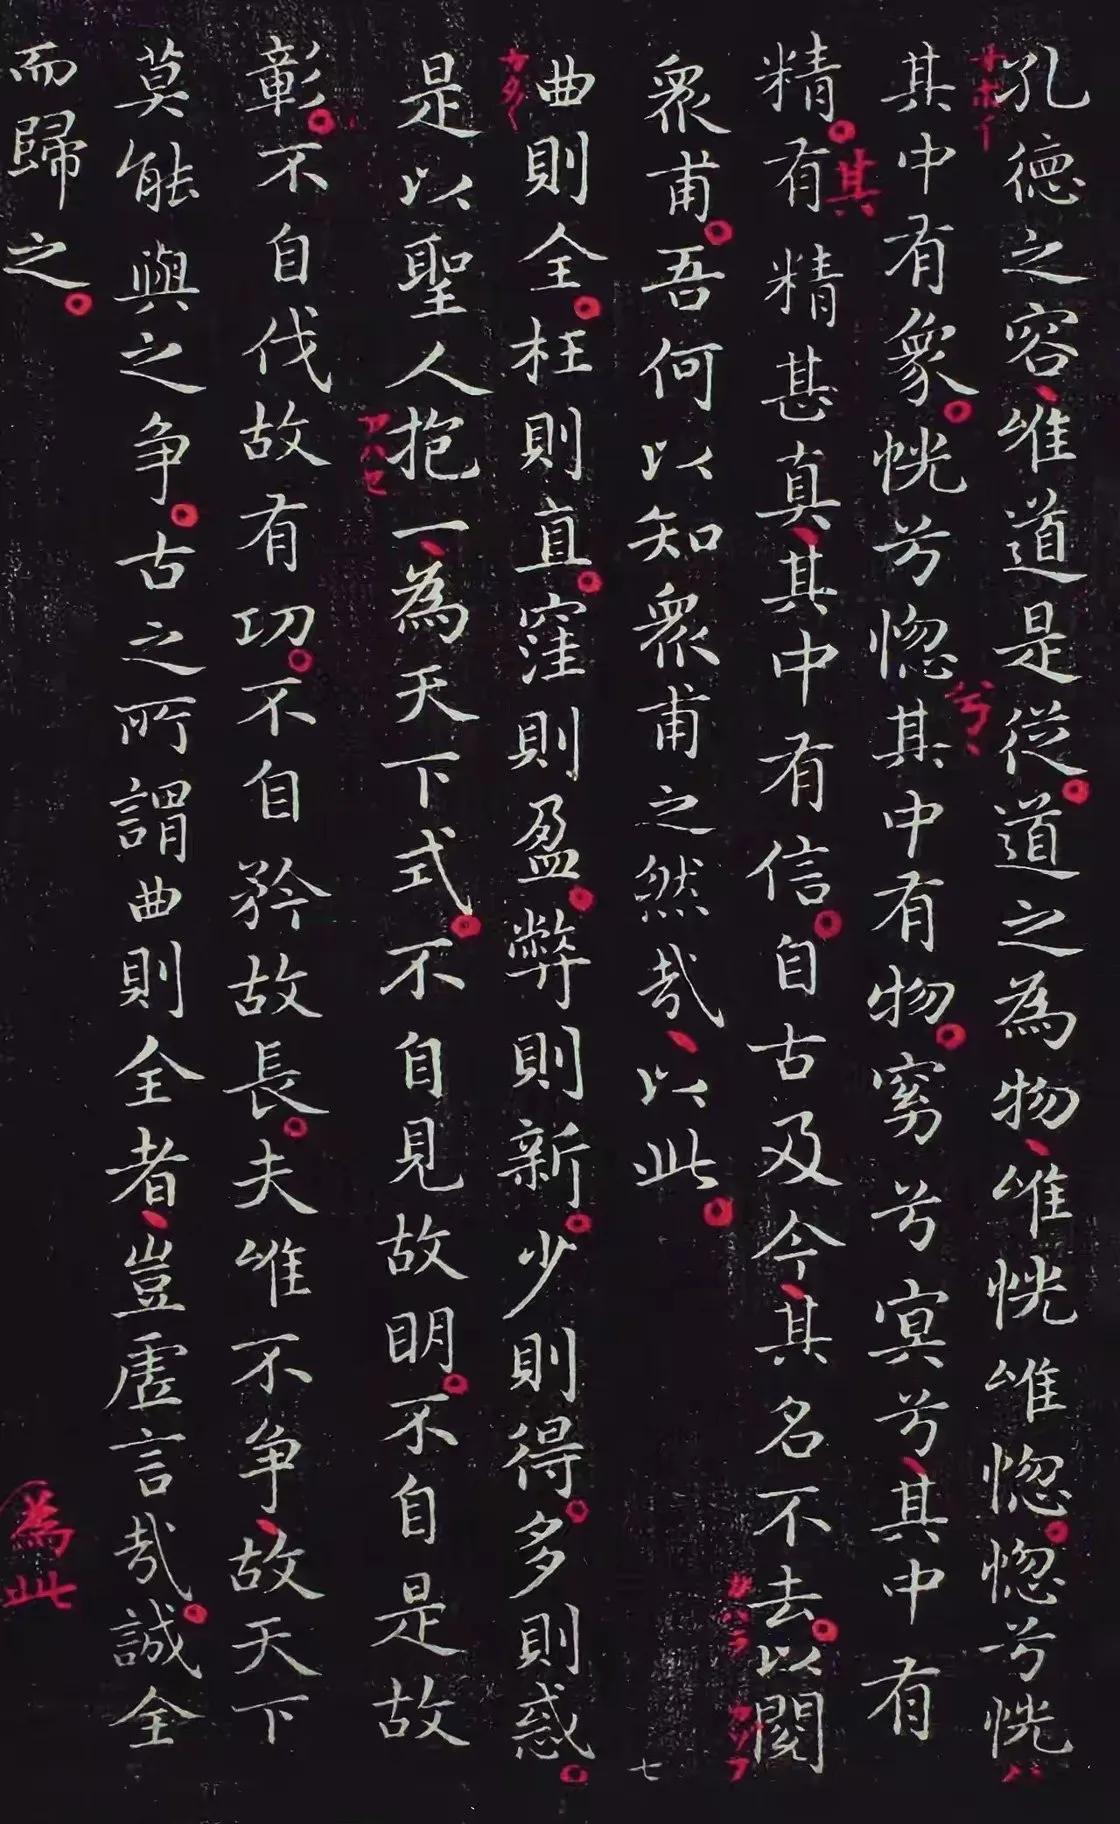 孔德之容、唯道是從。道之為物、唯恍唯惚。惚兮恍
其中有象。恍兮惚其中有物。窈兮冥兮、其中有
精。有精甚真、其中有信。自古及今、其名不去。以閱
眾甫。吾何以知眾甫之然哉、以此。
曲則全。枉則直。窪則盈。弊則新。少則得。多則惑。
是以聖人抱一、為天下式。不自見故明。不自是故
彰。不自伐故有功。不自矜故長。夫唯不爭、故天下
莫能與之爭。古之所謂曲則全者、豈虛言哉。誠全
而歸之。
兮、
其
為此
七